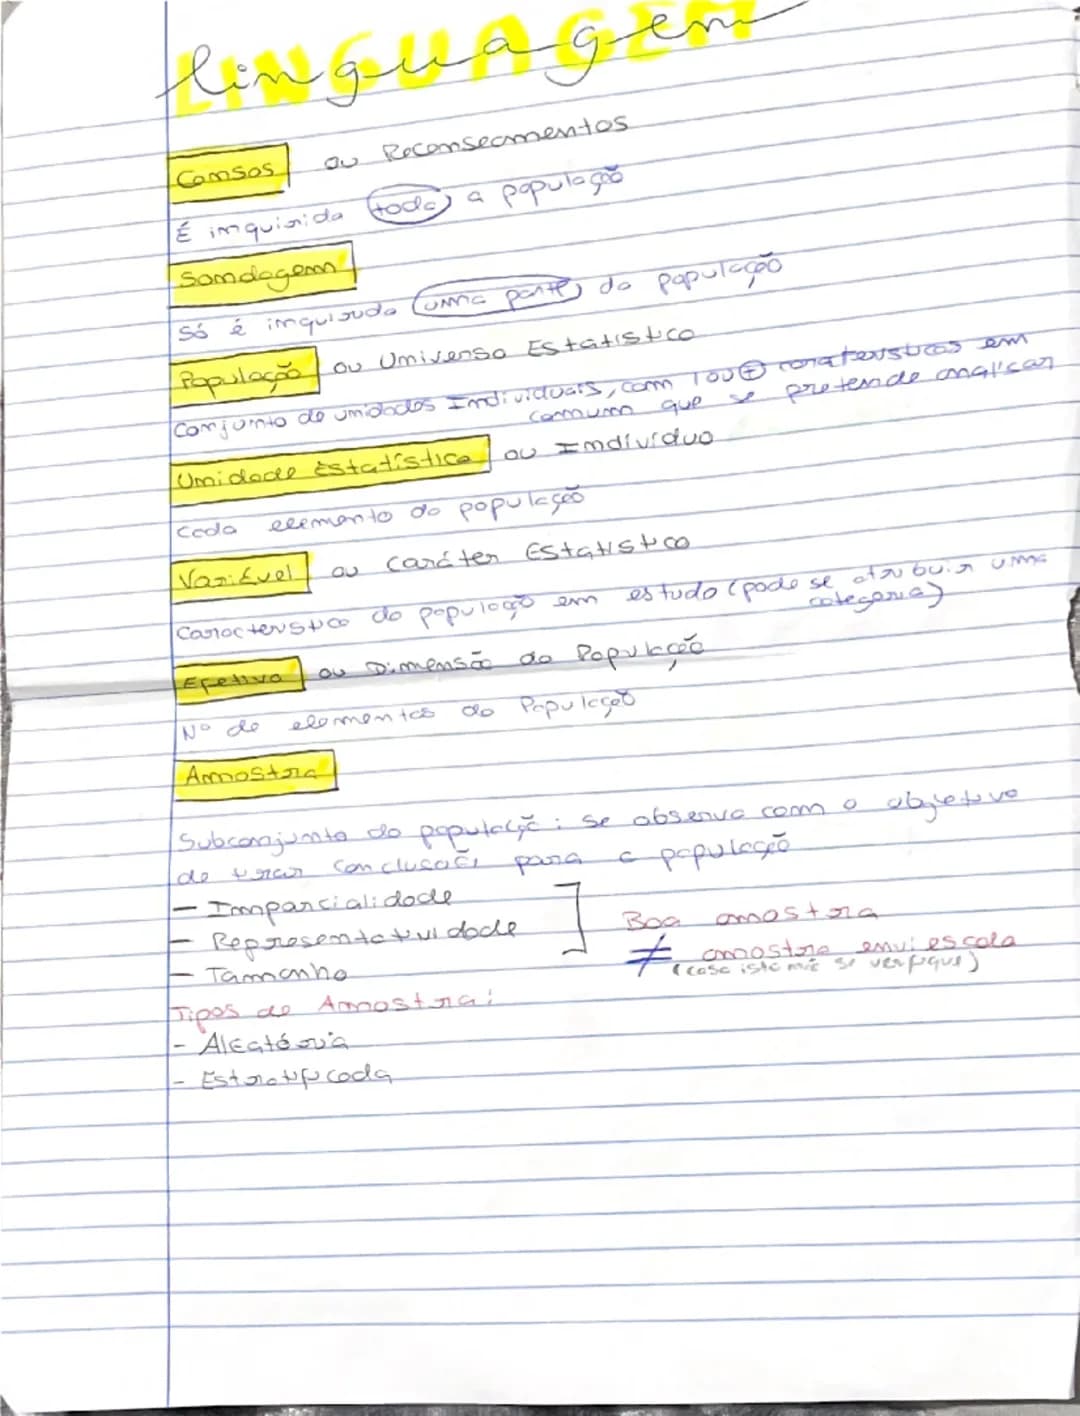 linguagem
LINGUAGEM
Censos ou Recenseamentos
É inquirida toda a população
Sondagem
Só é inquirida uma parte da população
População ou Universo Estatístico
Conjunto de unidades Individuais, com 1 ou + caraterísticas em
comum que se pretende analisar
Unidade Estatística ou Indivíduo
Cada elemento da população
Variável ou Caráter Estatístico
Característica da população em estudo (pode se atribuir uma
categoria)
Efetivo ou Dimensão da População
Nº de elementos da População
Amostra
Subconjunto da população: se observa com o objetivo
de tirar conclusões para a população
- Imparcialidade
- Representatividade
- Tamanho
] Boa amostra
≠ amostra enviescada
(caso isto não se verifique)
Tipos de Amostra:
- Aleatória
- Estratificada